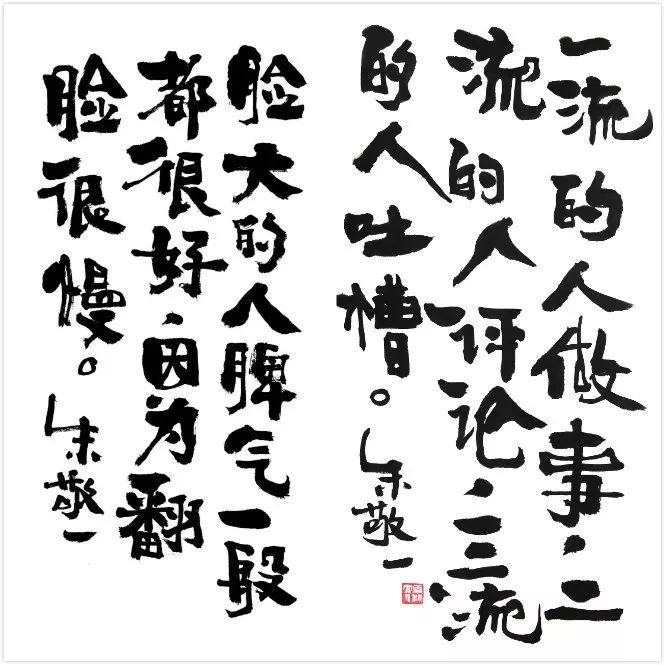 一流的人做事，二
流的人评论，三流
的人吐槽。
朱敬一
脸大的人脾气一般
都很好，因为翻
脸很慢。
朱敬一